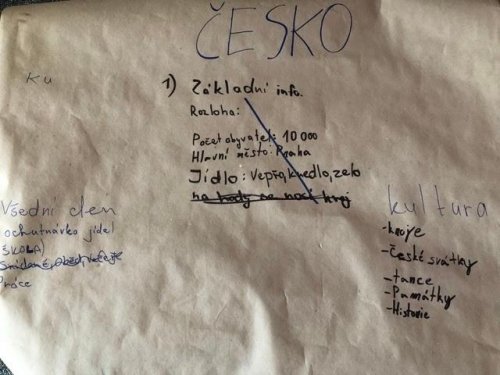 ČESKO
Ku
1) Základní info.
Rozloha:
Počet obyvatel: 10 000
Hlavní město: Praha
Jídlo: Vepřo, knedlo, zelo
na hody na naší kraj
Všední den
ochutnávka jídel
ŠKOLA)
Snídaně, oběd, večeře
Práce
kultura
-kroje
-české svátky
-tance
-Památky
-Historie